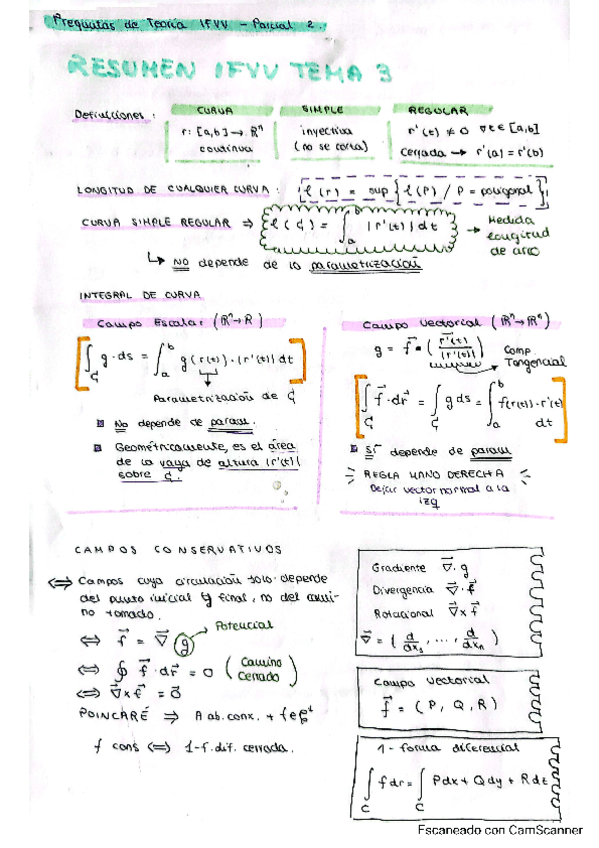 Preguntas de Teoría IFVV - Parcial 2.
RESUMEN IFVV TEMA 3
Definiciones:
CURVA
r: [a,b] → ℝⁿ
continua
SIMPLE
inyectiva
(no se corta)
REGULAR
r'(t) ≠ 0 ∀t ∈ [a,b]
cerrada → r'(a) = r'(b)
LONGITUD DE CUALQUIER CURVA: ℓ(r) = sup { ℓ(P) / P = poligonal }
CURVA SIMPLE REGULAR ⇒ ℓ(C) = ∫ₐᵇ |r'(t)| dt → Medida
longitud
de arco
↳ NO depende de la parametrización
INTEGRAL DE CURVA
Campo Escalar (ℝⁿ→ℝ)
∫_C g·ds = ∫ₐᵇ g(r(t))·|r'(t)| dt
Parametrización de C
No depende de param.
Geométricamente, es el área
de la vaya de altura |r'(t)|
sobre C.
Campo vectorial (ℝⁿ→ℝⁿ)
g = f⃗·(r⃗'(t)/|r'(t)|)
Comp
Tangencial
∫_C f⃗·dr⃗ = ∫_C g ds = ∫ₐᵇ f(r(t))·r'(t)
dt
SÍ depende de param
REGLA MANO DERECHA
Dejar vector normal a la
izq
CAMPOS CONSERVATIVOS
⇔ Campos cuya circulación solo depende
del punto inicial y final, no del cami-
no tomado.
⇔ f⃗ = ∇⃗ g → Potencial
⇔ ∮ f⃗·dr⃗ = 0 (Camino
cerrado)
⇔ ∇⃗×f⃗ = 0⃗
POINCARÉ ⇒ A ab. conx. + f∈C¹
f cons ⇔ 1-f. dif. cerrada.
Gradiente ∇⃗·g
Divergencia ∇⃗·f⃗
Rotacional ∇⃗×f⃗
∇⃗ = (d/dx₁, ..., d/dxₙ)
Campo vectorial
f⃗ = (P, Q, R)
1-forma diferencial
∫_C f dr = ∫_C Pdx + Qdy + Rdz
Escaneado con CamScanner